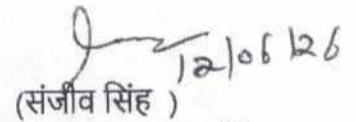 12/06/26
(संजीव सिंह )